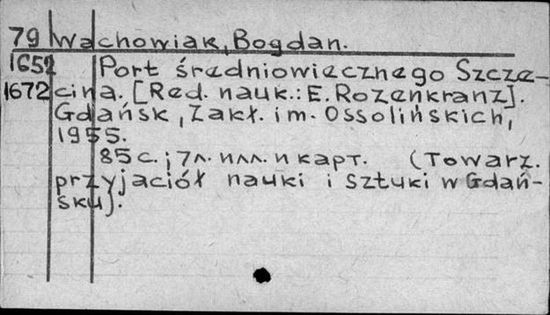 79 Wachowiak, Bogdan.
1652 Port średniowiecznego Szcze-
1672 cina. [Red. nauk.: E. Rozenkranz].
Gdańsk, Zakł. im. Ossolińskich,
1955.
85 с.; 7 л. илл. и карт. (Towarz.
przyjaciół nauki i sztuki w Gdań-
sku).